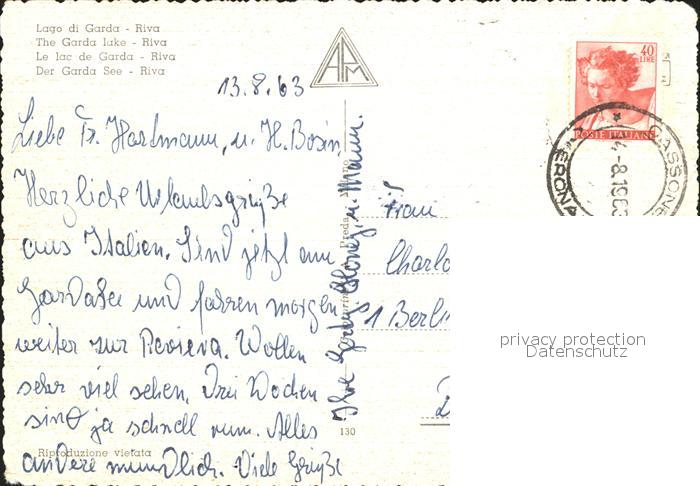 Lago di Garda - Riva
The Garda lake - Riva
Le lac de Garda - Riva
Der Garda See - Riva
APM
40
LIRE
POSTE ITALIANE
CASSONE
VERONA
4-8.1963
13.8.63
Liebe Fr. Hartmann, u. H. Bosin
Herzliche Urlaubsgrüße
aus Italien. Sind jetzt am
Gardasee und fahren morgen
weiter zur Reviera. Wollen
sehr viel sehen. Drei Wochen
sind ja schnell rum. Alles
andere mündlich. Viele Grüße
Ihre u. Mann.
Frau
Charlo
1 Berli
130
Riproduzione vietata
privacy protection
Datenschutz